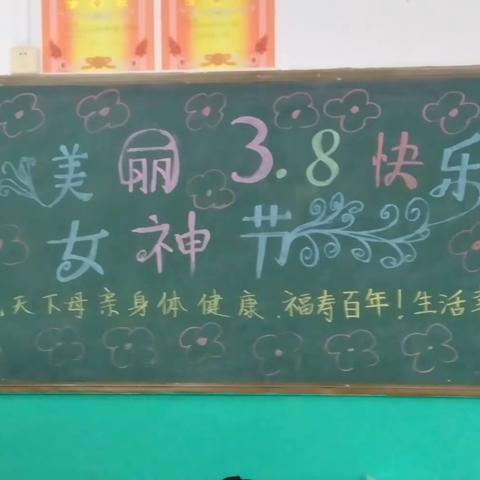 美丽 3.8 快乐
女神节
天下母亲身体健康.福寿百年!生活